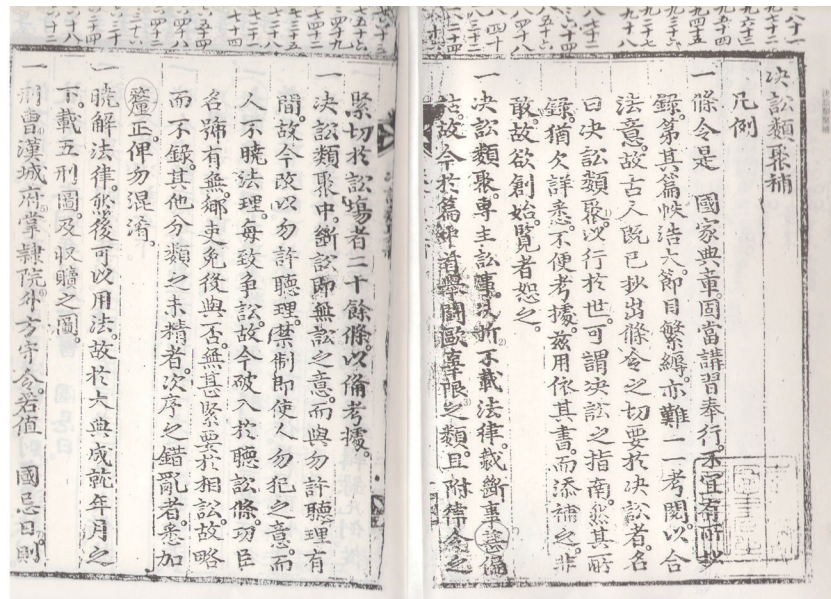 决訟類聚補
凡例
一條令是 國家典章固當講習奉行不宜有所抄
錄第其篇帙浩大節目繁縟亦難一一考閱以合
法意故古人旣已抄出條令之切要於决訟者名
曰决訟類聚以行於世可謂决訟之指南然其所
錄猶欠詳悉不便考據玆用依其書而添補之非
敢故欲創始覽者恕之
一决訟類聚專主訟事决折不載法律裁斷事甚偏
枯故今於篇首鬪毆辜限之類且附律令之
緊切於訟場者二十餘條以備考據
一决訟類聚中斷訟卽無訟之意而與勿許聽理有
間故今改以勿許聽理禁制卽使勿犯之意而
人不曉法理每致爭訟故今破入於聽訟條功臣
名號有無鄕吏免役與否無甚緊要於相訟故略
而不錄其他分類之未精者次序之錯亂者悉加
釐正俾勿混淆
一曉解法律然後可以用法故於大典成就年月之
下載五刑圖及收贖之圖
一刑曹漢城府掌隸院外方守令若値 國忌日則